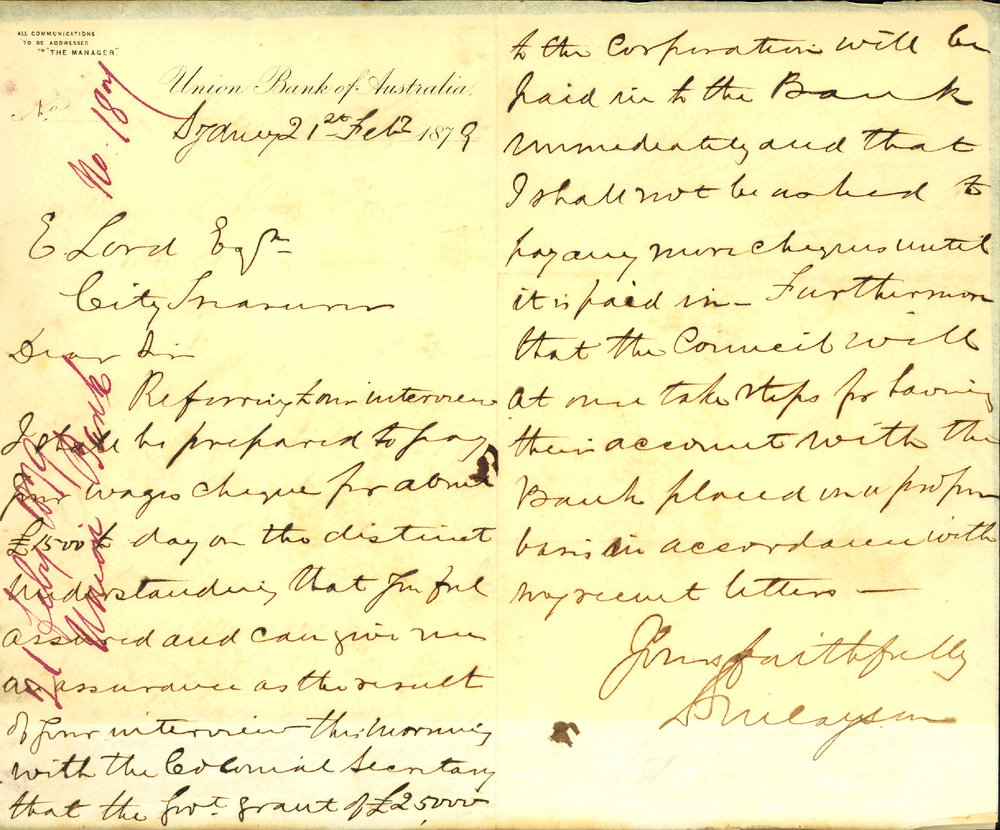 ALL COMMUNICATIONS
TO BE ADDRESSED
TO "THE MANAGER"
No
No. 1807
Union Bank of Australia,
Sydney 21st Feby 1879
E Lord Esqre
City Treasurer
Dear Sir
Referring to our interview
I shall be prepared to pay
your wages cheque for about
£1500 to day on the distinct
understanding that you feel
assured and can give me
an assurance as the result
of your interview this morning
with the Colonial Secretary
that the Govt. grant of £25000
21 Feby 1879
Union Bank
to the Corporation will be
paid in to the Bank
immediately and that
I shall not be asked to
pay any more cheques until
it is paid in – Furthermore
that the Council will
at once take steps for having
their account with the
Bank placed on a proper
basis in accordance with
my recent letters –
Yours faithfully